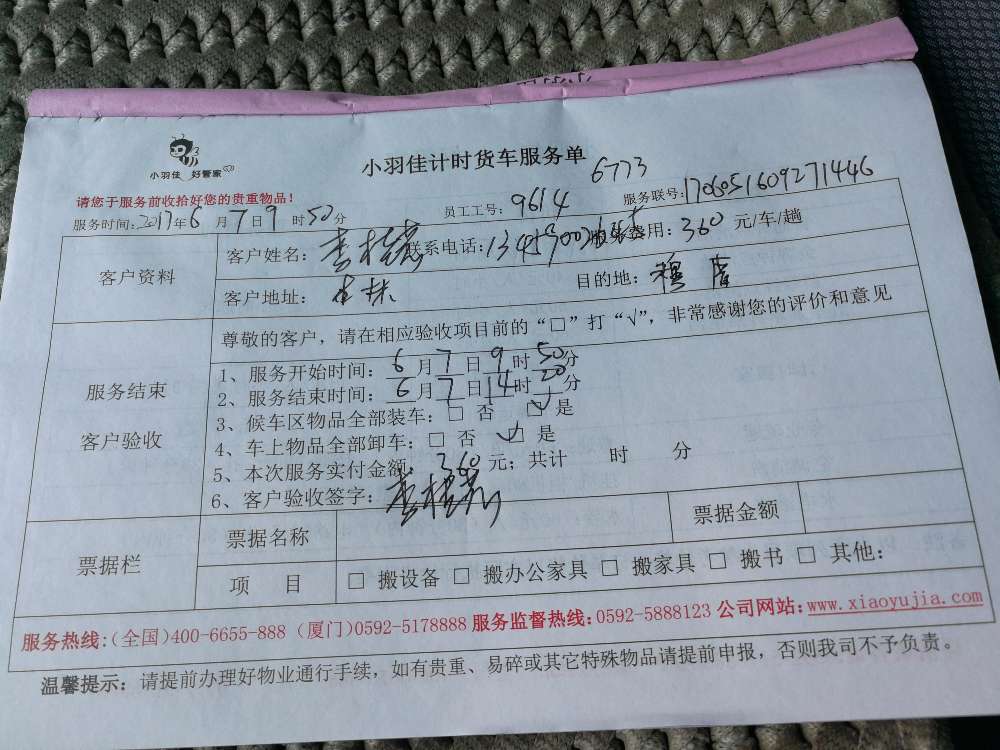 小羽佳 好管家
小羽佳计时货车服务单
6773
请您于服务前收拾好您的贵重物品!
服务时间:2017年6月7日9时50分 员工工号:9614 服务联号:1706051609271446
客户资料
客户姓名: 联系电话: 费用:360元/车/趟
客户地址: 目的地:
尊敬的客户,请在相应验收项目前的“□”打“√”,非常感谢您的评价和意见
服务结束
客户验收
1、服务开始时间:6月7日9时50分
2、服务结束时间:6月7日14时20分
3、候车区物品全部装车:□ 否 ☑ 是
4、车上物品全部卸车:□ 否 ☑ 是
5、本次服务实付金额:360元;共计 时 分
6、客户验收签字:
票据栏
票据名称 票据金额
项 目 □ 搬设备 □ 搬办公家具 □ 搬家具 □ 搬书 □ 其他:
服务热线:(全国)400-6655-888 (厦门)0592-5178888 服务监督热线:0592-5888123 公司网站:www.xiaoyujia.com
温馨提示:请提前办理好物业通行手续,如有贵重、易碎或其它特殊物品请提前申报,否则我司不予负责。